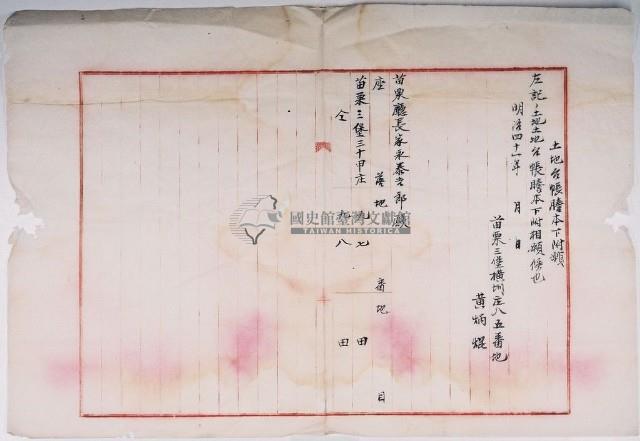 土地台帳謄本下附願
左記ノ土地土地台帳謄本下附相願候也
明治四十一年 月 日
苗栗三堡橫圳庄八五番地
黄炳焜
苗栗廳長家永泰吉郎殿
座 落 地 番地 目
苗栗三堡三十甲庄 九七 田
仝 九八 田
國史館臺灣文獻館
TAIWAN HISTORICA